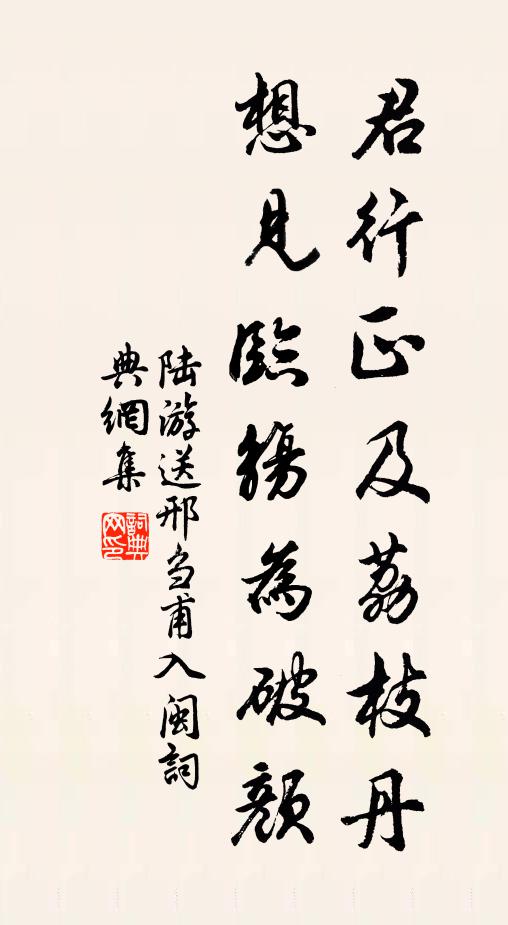 君行正及荔枝丹
想見臨觴為破顏
陸游送邢芻甫入閩詞
典網集
詞典网印